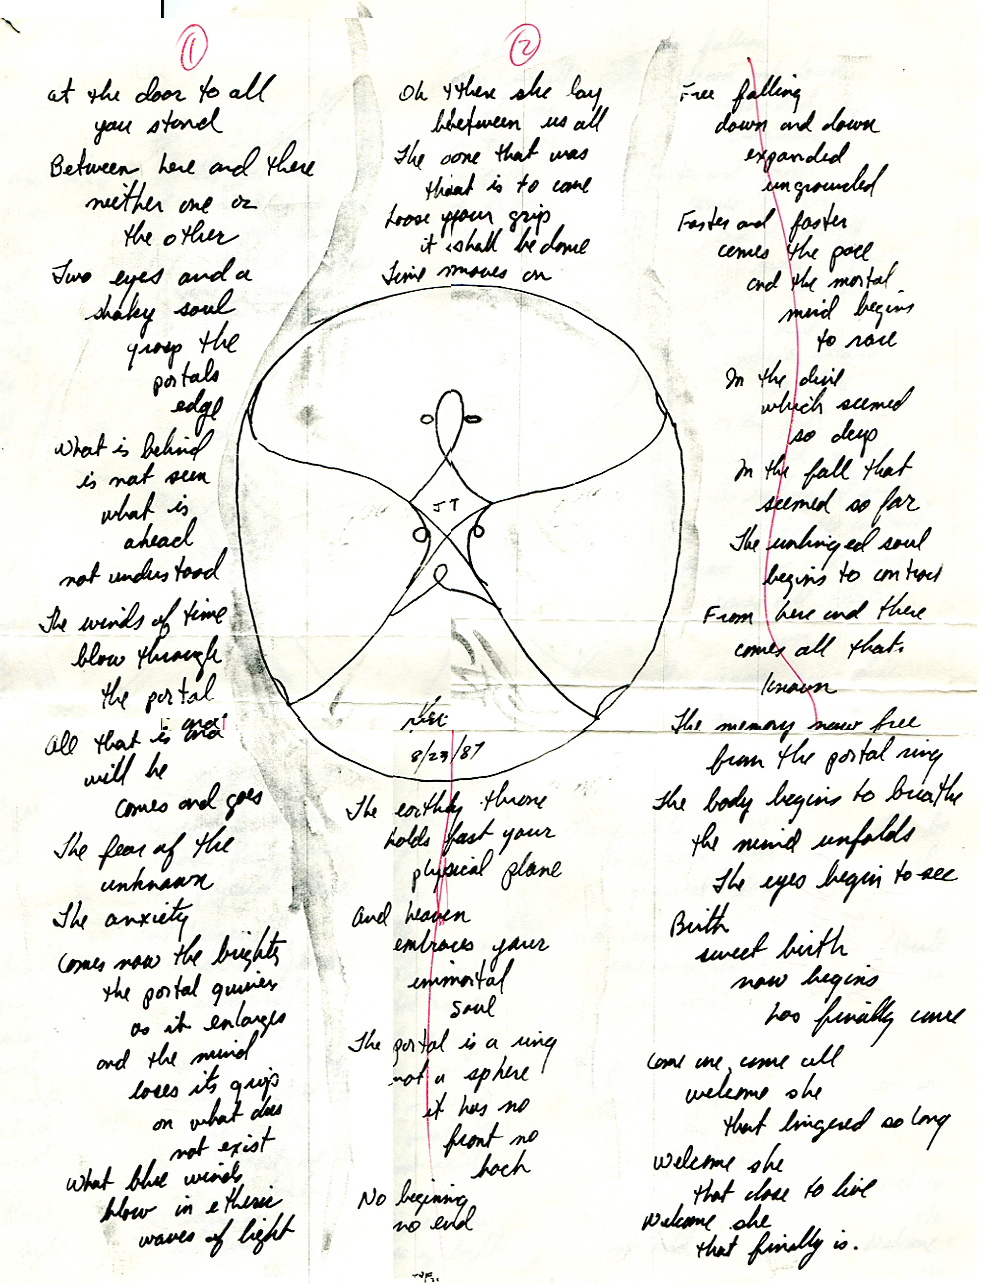 1
at the door to all
you stand
Between here and there
neither one or
the other
Two eyes and a
shaky soul
grasp the
portals
edge
What is behind
is not seen
what is
ahead
not understood
The winds of time
blow through
the portal
All that is and
will be
comes and goes
The fear of the
unknown
The anxiety
Comes now the brights
the portal quivers
as it enlarges
and the mind
loses its grip
on what does
not exist
What blue winds
blow in etheric
waves of light
2
Oh there she lay
between us all
The one that was
that is to come
Loose your grip
it shall be done
Time moves on
JT
8/23/87
The earthly throne
holds fast your
physical plane
And heaven
embraces your
immortal
soul
The portal is a ring
not a sphere
it has no
front no
back
No begining
no end
Free falling
down and down
expanded
ungrounded
Faster and faster
comes the pace
and the mortal
mind begins
to race
In the dive
which seemed
so deep
In the fall that
seemed so far
The unhinged soul
begins to contract
From here and there
comes all thats
known
The memory now free
from the portal ring
The body begins to breathe
the mind unfolds
The eyes begin to see
Birth
sweet birth
now begins
has finally come
Come one, come all
welcome she
that lingered so long
Welcome she
that chose to live
Welcome she
that finally is.